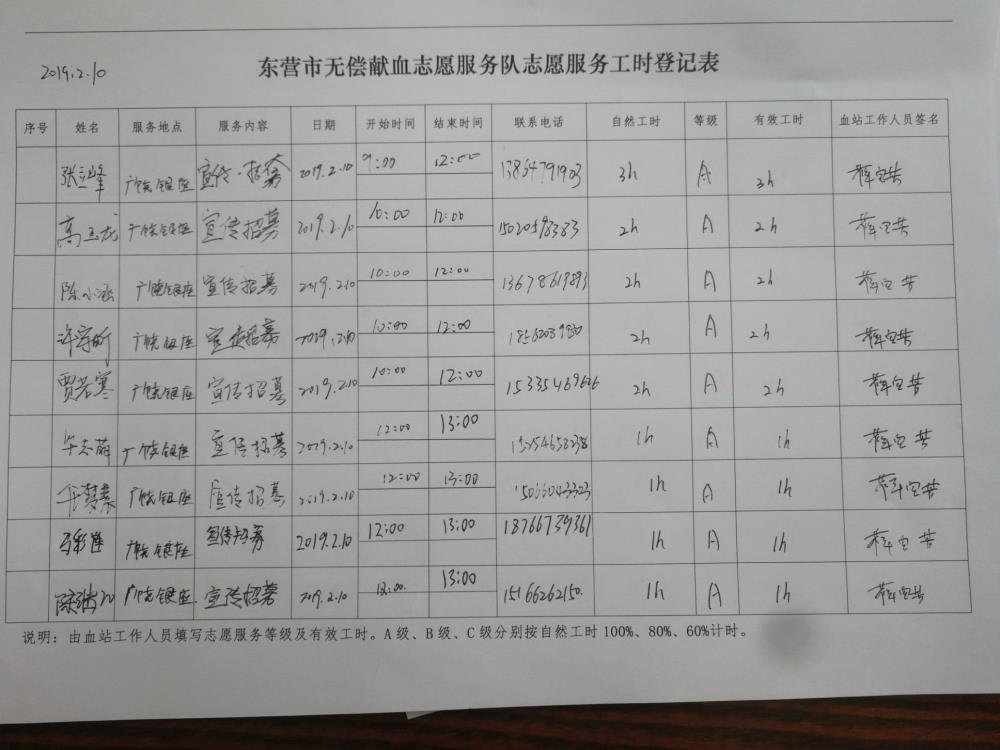 2019.2.10
东营市无偿献血志愿服务队志愿服务工时登记表
序号 姓名 服务地点 服务内容 日期 开始时间 结束时间 联系电话 自然工时 等级 有效工时 血站工作人员签名
张立峰 广饶银座 宣传·招募 2019.2.10 9:00 12:00 13864791903 3h A 3h
高玉龙 广饶银座 宣传招募 2019.2.10 10:00 12:00 2h A 2h
陈小涵 广饶银座 宣传招募 2019.2.10 10:00 12:00 13678619893 2h A 2h
广饶银座 宣传招募 2019.2.10 10:00 12:00 2h A 2h
贾若寒 广饶银座 宣传招募 2019.2.10 10:00 12:00 15335469626 2h A 2h
广饶银座 宣传招募 2019.2.10 12:00 13:00 15254658238 1h A 1h
广饶银座 宣传招募 2019.2.10 12:00 13:00 1h A 1h
广饶银座 宣传招募 2019.2.10 12:00 13:00 18766739361 1h A 1h
广饶银座 宣传招募 2019.2.10 12:00 13:00 15166262150 1h A 1h
说明：由血站工作人员填写志愿服务等级及有效工时。A级、B级、C级分别按自然工时100%、80%、60%计时。